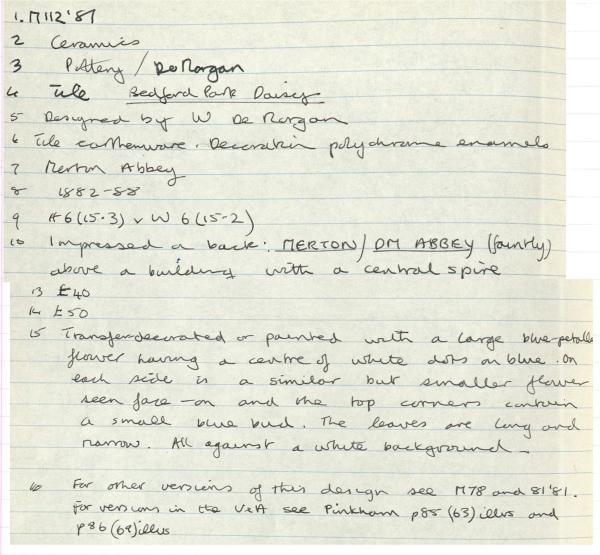 1. M112'87
2 Ceramics
3 Pottery / De Morgan
4 Tile Bedford Park Daisy
5 Designed by W De Morgan
6 Tile earthenware. Decorated in polychrome enamels
7 Merton Abbey
8 1882-88
9 H 6 (15.3) x W 6 (15.2)
10 Impressed on back: MERTON / DM ABBEY (faintly)
above a building with a central spire
13 £40
14 £50
15 Transfer-decorated or painted with a large blue-petalled
flower having a centre of white dots on blue. On
each side is a similar but smaller flower
seen face-on and the top corners contain
a small blue bud. The leaves are long and
narrow. All against a white background.
16 For other versions of this design see M78 and 81'81.
For versions in the V & A see Pinkham p85 (63) illus and
p86 (68) illus